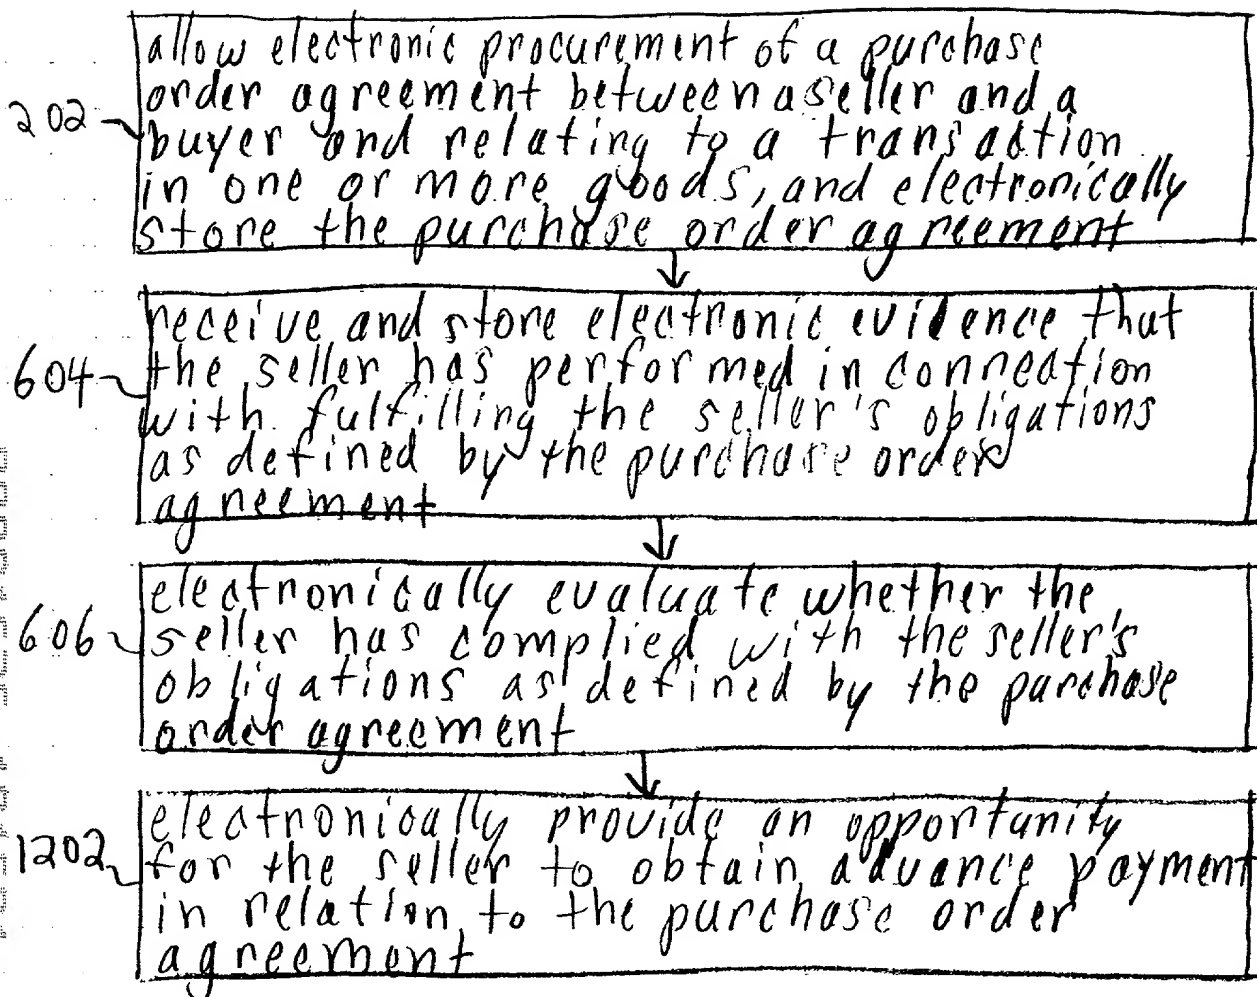 allow electronic procurement of a purchase
order agreement between a seller and a
202
buyer and relating to a transaction
in one or more goods, and electronically
store the purchase order agreement
receive and store electronic evidence that
604
the seller has performed in connection
with fulfilling the seller's obligations
as defined by the purchase order
agreement
electronically evaluate whether the
606
seller has complied with the seller's
obligations as defined by the purchase
order agreement
electronically provide an opportunity
1202
for the seller to obtain advance payment
in relation to the purchase order
agreement